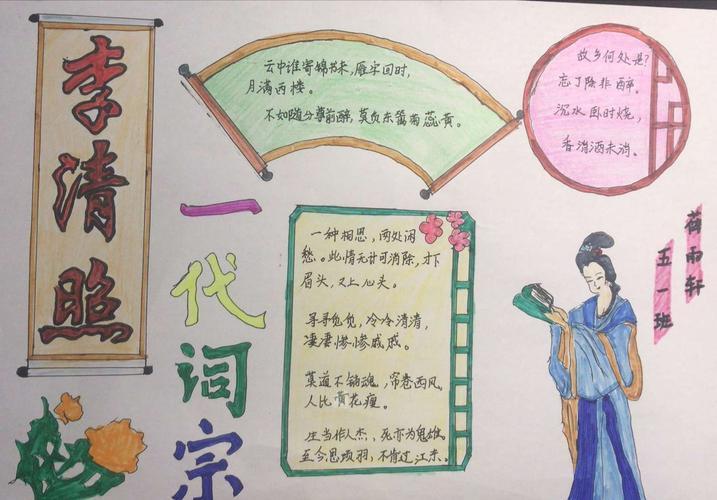 李清照
云中谁寄锦书来,雁字回时,
月满西楼。
不如随分尊前醉,莫负东篱菊蕊黄。
故乡何处是?
忘了除非醉。
沉水卧时烧,
香消酒未消。
一代词宗
一种相思,两处闲
愁。此情无计可消除,才下
眉头,又上心头。
寻寻觅觅,冷冷清清,
凄凄惨惨戚戚。
莫道不销魂,帘卷西风,
人比黄花瘦。
生当作人杰、死亦为鬼雄。
至今思项羽,不肯过江东。
雨轩
五一班